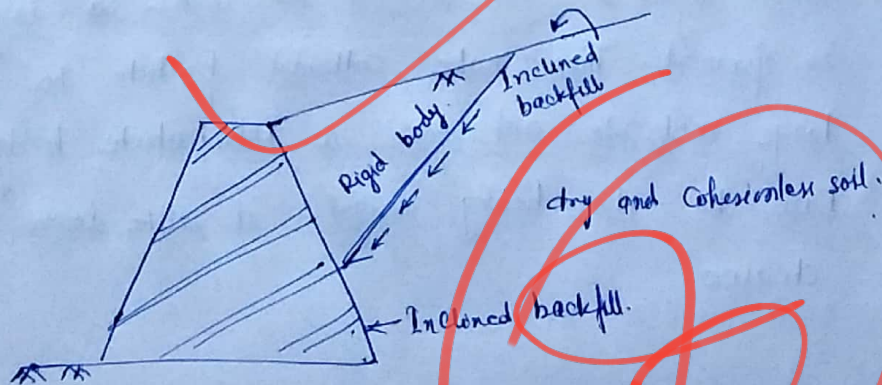 Inclined
backfill
Rigid body.
dry and Cohesionless soil.
Inclined backfill.